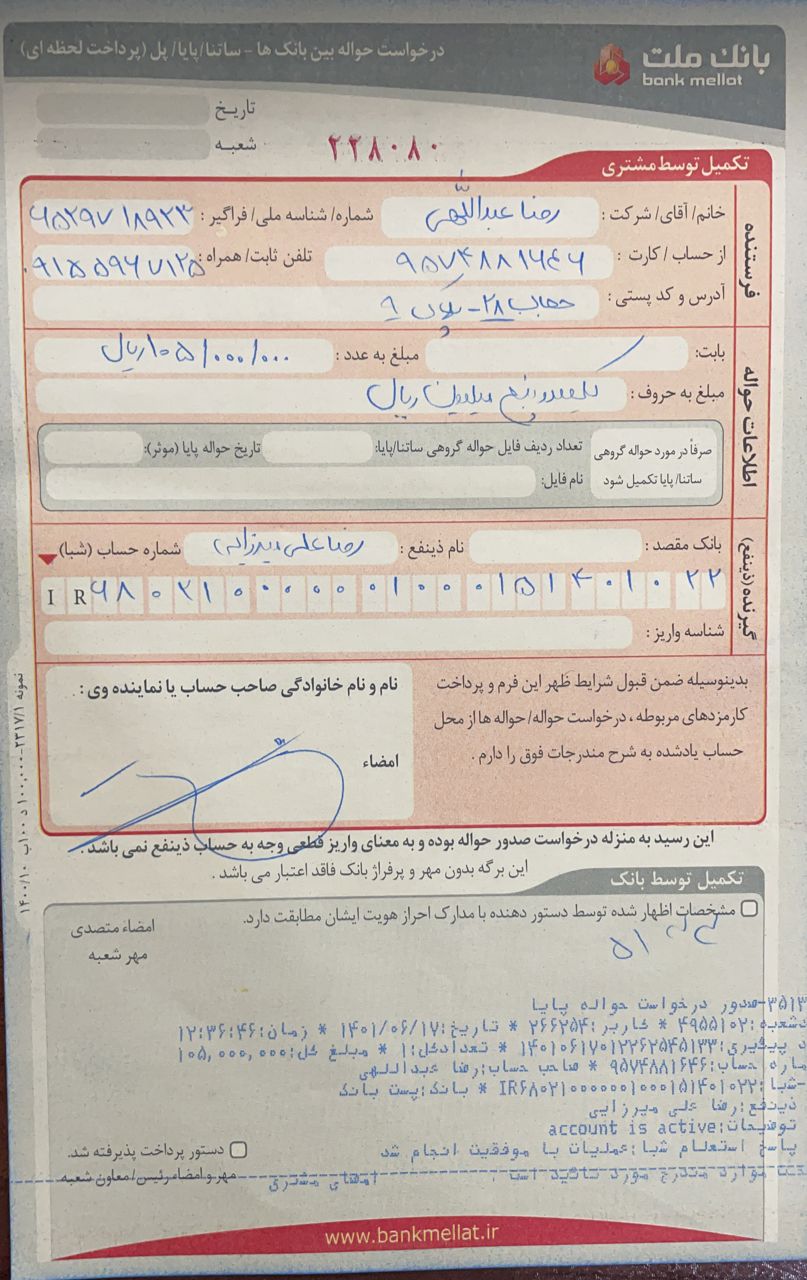 بانک ملت
bank mellat
درخواست حواله بین بانک ها - ساتنا/پایا/ پل (پرداخت لحظه ای)
تاریخ
شعبه
۲۲۸۰۸۰
تکمیل توسط مشتری
فرستنده
خانم/ آقای/ شرکت : رضا عبداللهی شماره/ شناسه ملی/ فراگیر :
از حساب / کارت : ۹۵۷۴۸۸۱۶۴۶ تلفن ثابت/ همراه : ۰۹۱۵۵۹۶۷۱۲۵
آدرس و کد پستی : ۲۸ - پلاک ۹
اطلاعات حواله
بابت: مبلغ به عدد : ۱۰۵/۰۰۰/۰۰۰ ریال
مبلغ به حروف : یکصد و پنج میلیون ریال
صرفاً در مورد حواله گروهی ساتنا/ پایا تکمیل شود
تعداد ردیف فایل حواله گروهی ساتنا/پایا: تاریخ حواله پایا (موثر):
نام فایل:
گیرنده (ذینفع)
بانک مقصد : نام ذینفع : رضا علی میرزایی شماره حساب (شبا)
I R ۶۸۰۲۱۰۰۰۰۰۰۱۰۰۰۱۵۱۴۰۱۰۲۲
شناسه واریز :
بدینوسیله ضمن قبول شرایط ظهر این فرم و پرداخت
کارمزدهای مربوطه ، درخواست حواله/ حواله ها از محل
حساب یادشده به شرح مندرجات فوق را دارم .
نام و نام خانوادگی صاحب حساب یا نماینده وی :
امضاء
این رسید به منزله درخواست صدور حواله بوده و به معنای واریز قطعی وجه به حساب ذینفع نمی باشد .
این برگه بدون مهر و پرفراژ بانک فاقد اعتبار می باشد .
نمونه ۲۳۱۷/۱-۱۰۰,۰۰۰ د ۱۰۰ب ۱۴۰۰/۱۰
تکمیل توسط بانک
مشخصات اظهار شده توسط دستور دهنده با مدارک احراز هویت ایشان مطابقت دارد.
امضاء متصدی
مهر شعبه
۵۱
۳۵۱۳-صدور درخواست حواله پایا
دشعبه:۴۹۵۵۱۰۲ * کاربر:۲۶۶۲۵۴ * تاریخ:۱۴۰۱/۰۶/۱۷ * زمان:۱۲:۳۶:۴۶
د پیگیری:۱۴۰۱۰۶۱۷۰۱۲۲۶۲۵۴۵۱۳۳ * تعدادکل:۱ * مبلغ کل:۱۰۵,۰۰۰,۰۰۰
ماره حساب:۹۵۷۴۸۸۱۶۴۶ * صاحب حساب:رضا عبداللهی
-شبا:IR۶۸۰۲۱۰۰۰۰۰۰۱۰۰۰۱۵۱۴۰۱۰۲۲ * بانک:پست بانک
ذینفع:رضا علی میرزایی
توضیحات:account is active
پاسخ استعلام شبا:عملیات با موفقیت انجام شد
صحت موارد مندرج مورد تائید است . امضای مشتری
دستور پرداخت پذیرفته شد.
مهر و امضاء رئیس/ معاون شعبه
www.bankmellat.ir